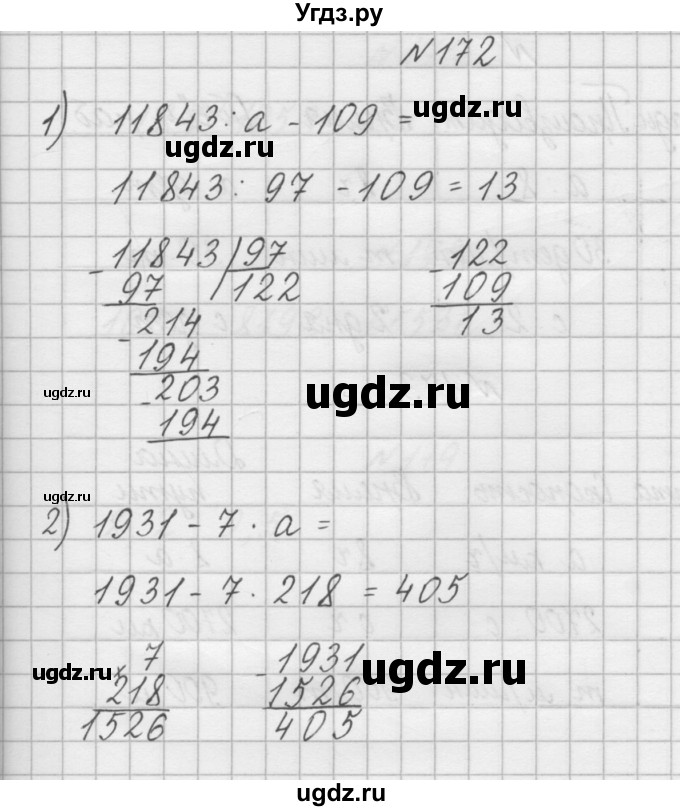 Угдз.ру
N172
1) 11843 : a - 109 =
ugdz.ru
ugdz.ru
11843 : 97 - 109 = 13
- 11843 97
97 122
- 214
194
- 203
194
- 122
109
13
ugdz.ru
ugdz.ru
ugdz.ru
2) 1931 - 7 · a =
1931 - 7 · 218 = 405
× 7
218
1526
- 1931
1526
405
ugdz.ru
ugdz.ru
ugdz.ru
ugdz.ru